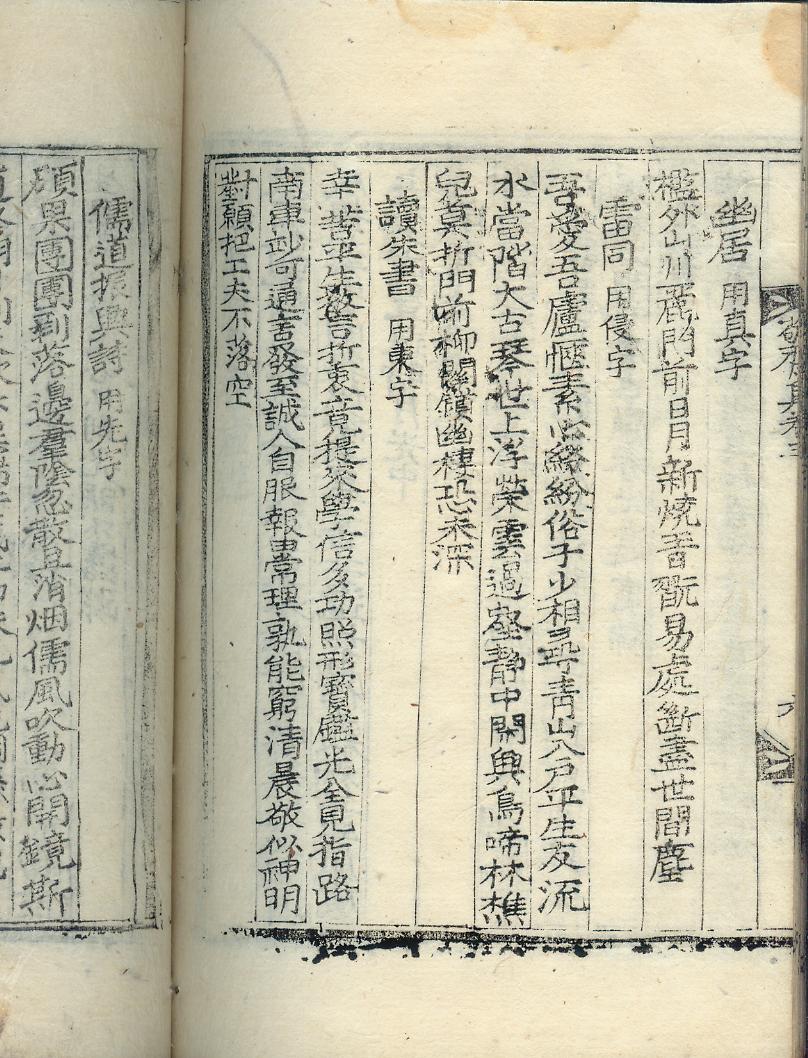 幽居 用真字
檻外山川麗門前日月新燒香翫易處斷盡世間塵
雷同 用侵字
吾愛吾廬愜素心繽紛俗子少相尋青山入戶平生友流
水當階太古琴世上浮榮雲過壑靜中閑興鳥啼林樵
兒莫折門前柳關鎖幽棲恐未深
讀朱書 用東字
辛苦平生教言折衷竟稷來學信多功照形寶鑑光全見指路
南車玅可通言發至誠人自服報由常理孰能窮清晨敬似神明
對願把工夫不落空
儒道振興詩 用先字
碩果團團剝落邊羣陰忽散且消烟儒風吹動心開鏡斯